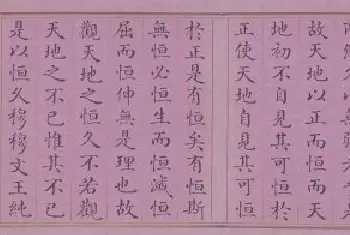 故天地以正而恒而天
地初不自見其可恒於
正使天地自見其可恒
於正是有恒矣有恒斯
無恒必恒生而恒滅恒
屈而恒伸無是理也故
觀天地之恒久不若觀
天地之不已惟其不已
是以恒久穆穆文王純